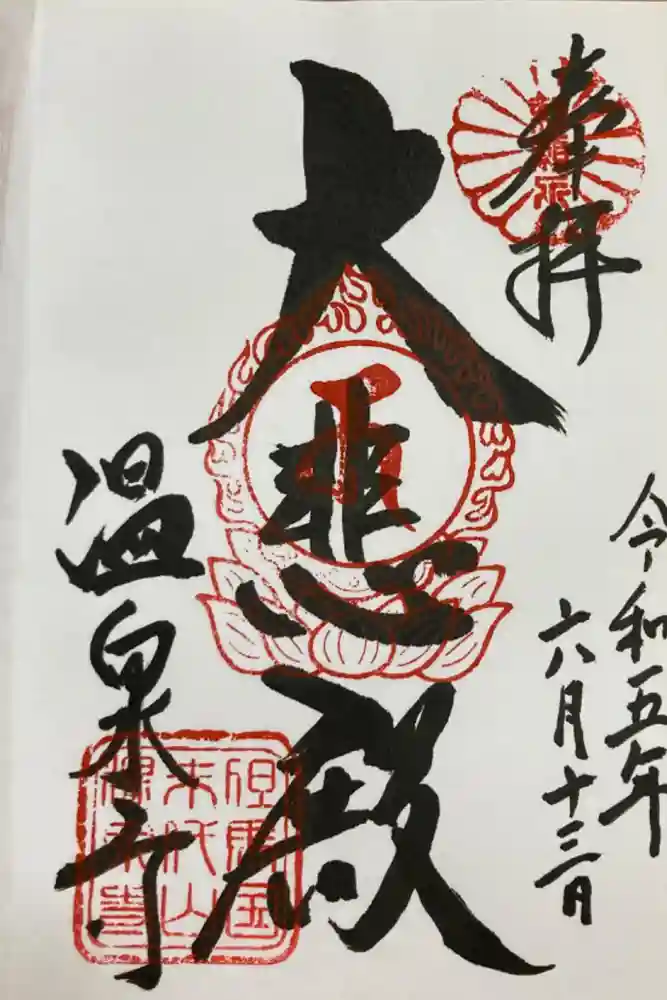 奉拝
令和五年
六月十三日
大悲殿
温泉寺
但馬国
末代山